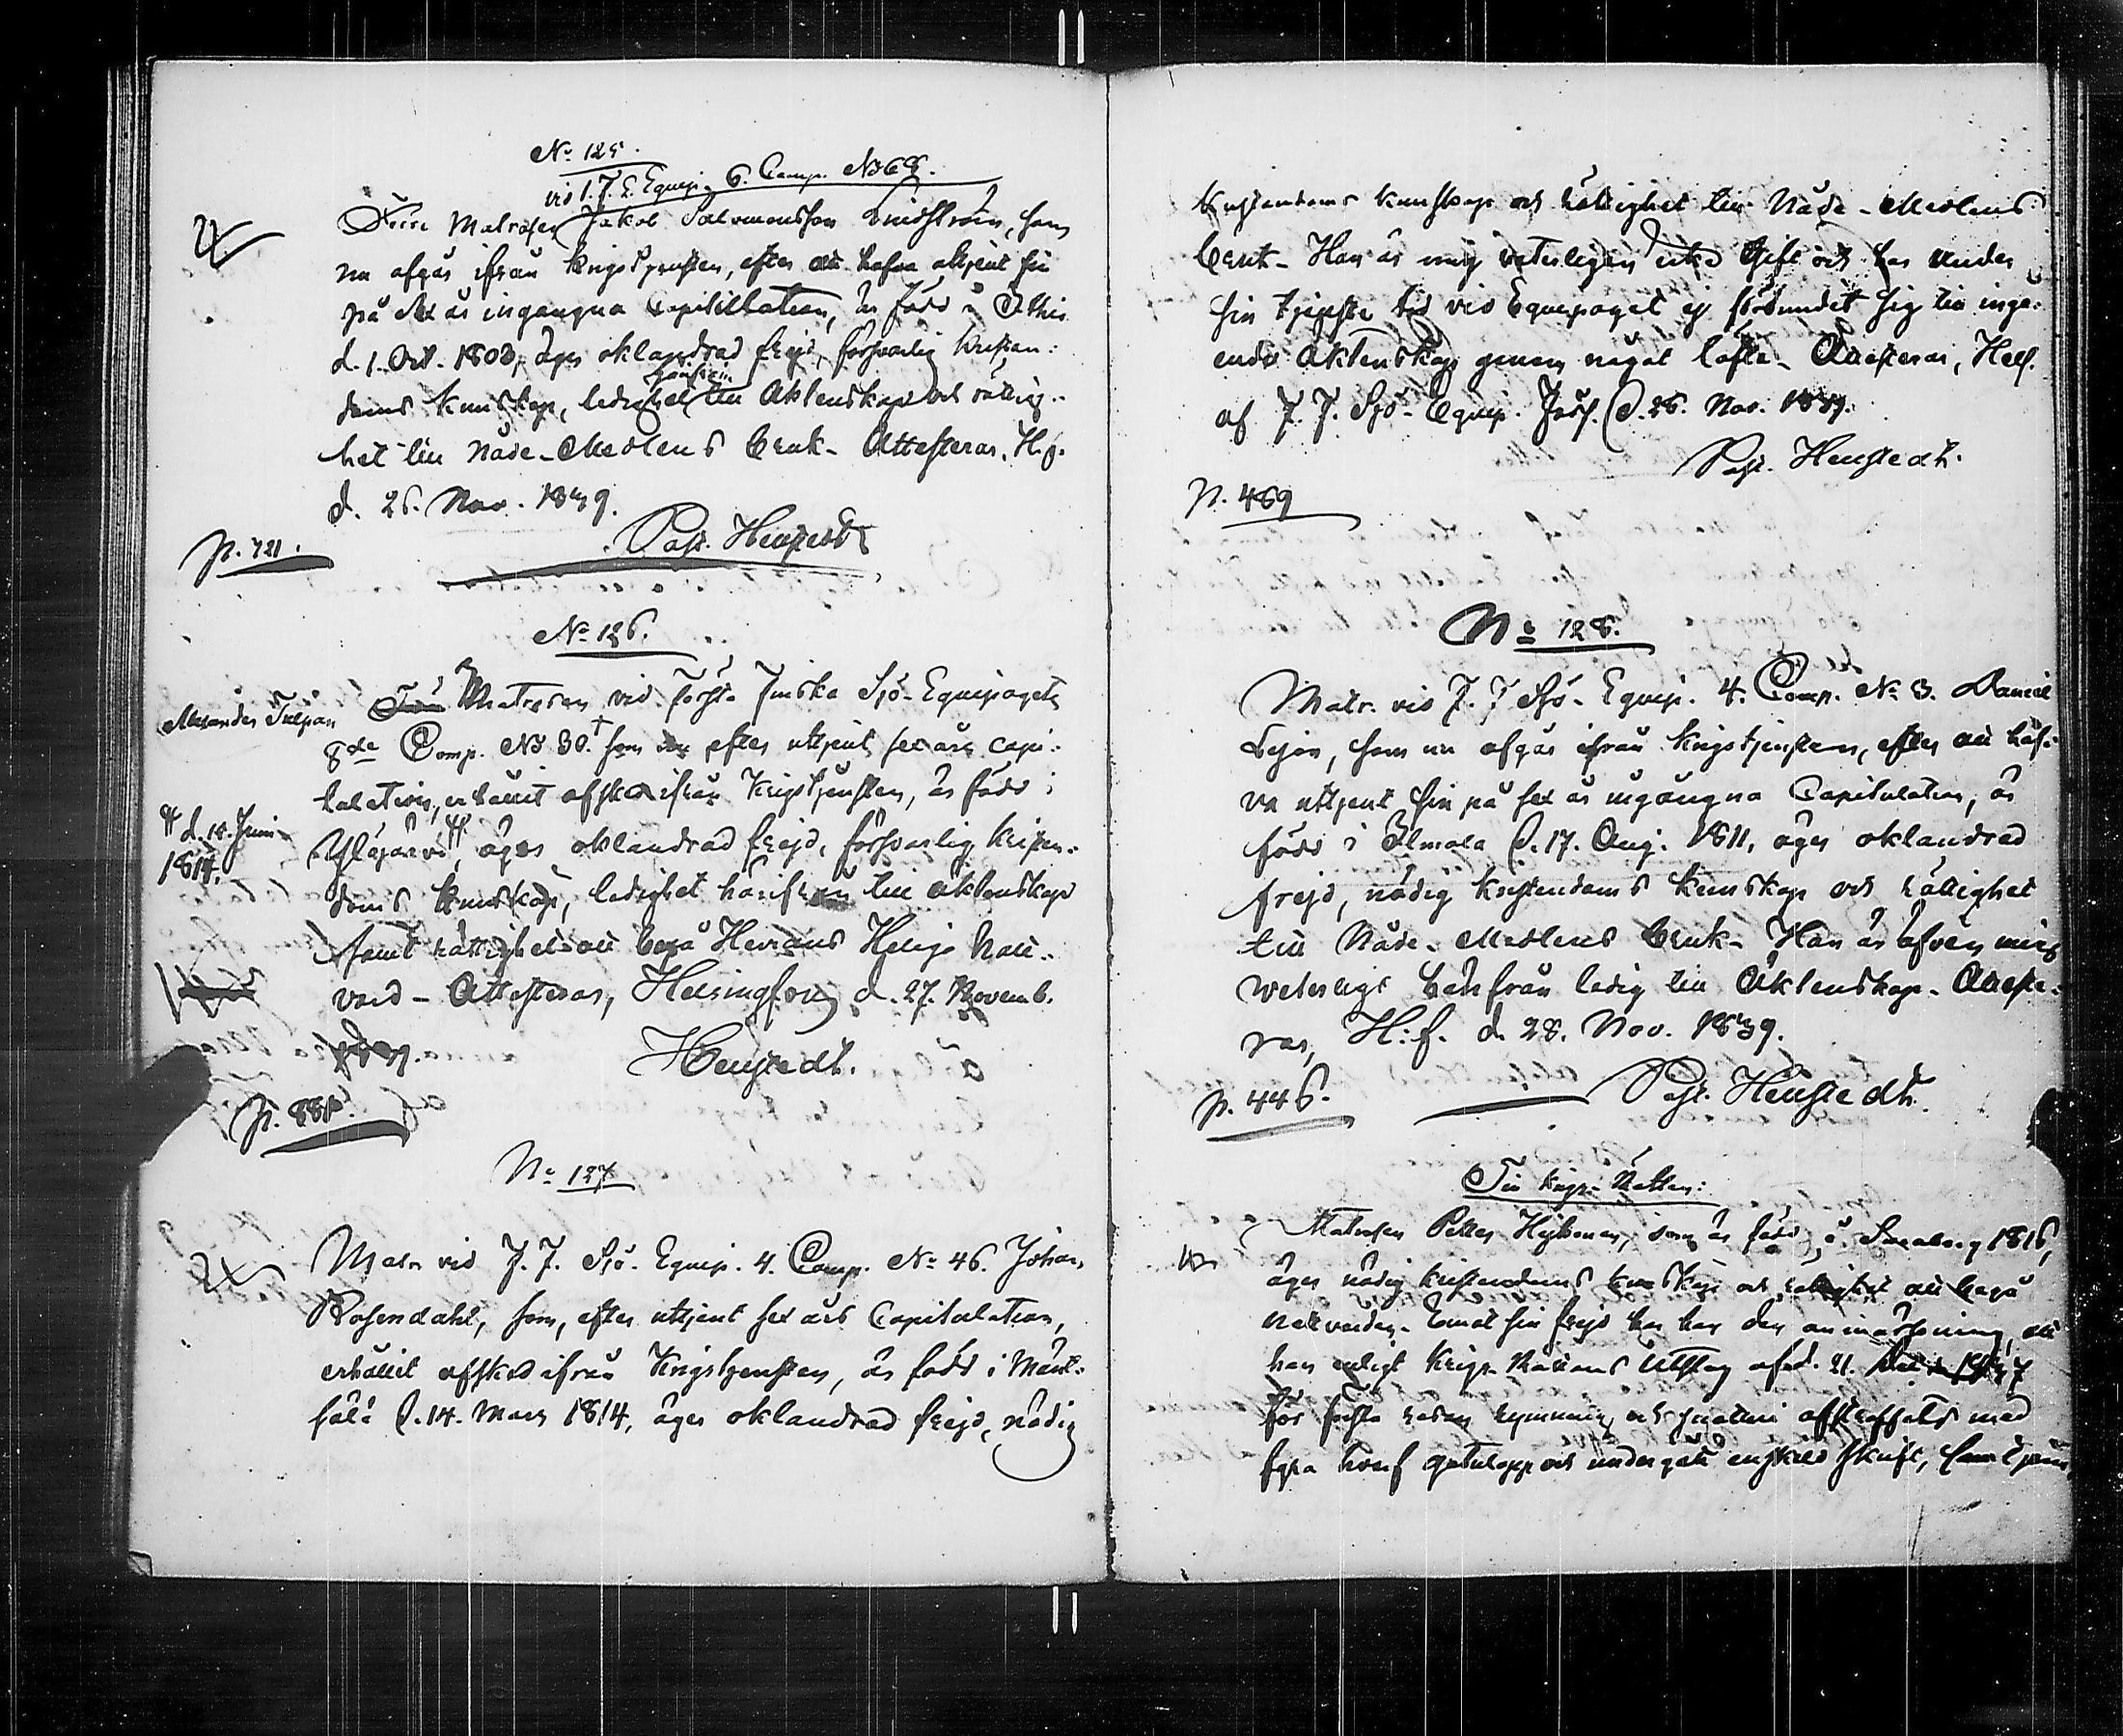 No 125.
vid 1. F. S. Equip. 6. Comp. No 68.
Förre Matrosen Jakob Salomonsson Lindström, som
nu afgår ifrån krigstjensten, efter att hafva uttjent sin
på sex år ingångna Capitulation, är född i Attis
d. 1. Oct. 1803, äger oklandrad frejd, försvarlig kristen-
doms kunskap, ledighet härifrån till Äktenskap och rättig-
het till Nåde-Medlens bruk. Attesteras, H.fs.
d. 26. Nov. 1839.
Past. Henstedt
p. 721.
No 126.
Alexander Tulpan
Matrosen vid Första Finska Sjö-Equipagets
8de Comp. No 30. † som efter uttjent sex års capi-
tulation, erhållit afsked ifrån Krigstjensten, är född i
Ylöjärvi #, äger oklandrad frejd, försvarlig kristen-
# d. 14. Juni
1814.
doms kunskap, ledighet härifrån till äktenskap
samt rättighet att begå Herrans Heliga Natt-
vard - Attesteras, Helsingfors d. 27. Novemb.
1839.
Henstedt.
p. 881.
No 127
Matr. vid F. F. Sjö-Equip. 4. Comp. No 46. Johan
Rosendahl, som, efter uttjent sex års Capitulation,
erhållit afsked ifrån Krigstjensten, är född i Mänt-
sälä d. 14. Mars 1814, äger oklandrad frejd, nödig
kristendoms kunskap och rättighet till Nåde-Medlens
bruk - Han är mig veterligen icke Gift och har under
sin tjenste tid vid Equipaget ej förbundit sig till ingå-
ende Äktenskap genom något löfte - Attesteras, Helf.
af F. F. Sjö-Equip. Förs. d. 26. Nov. 1839.
Past. Henstedt.
p. 469
No 128.
Matr. vid F. F Sjö-Equip. 4. Comp. No 3. Daniel
Lejon, som nu afgår ifrån krigstjensten, efter att haf-
va uttjent sin på sex år ingångna Capitulation, är
född i Ilmola d. 17. Aug. 1811, äger oklandrad
frejd, nödig kristendoms kunskap och rättighet
till Nåde-Medlens bruk - Han är äfven mig
veterligt härifrån ledig till Äktenskap - Atteste-
ras, H:f. d. 28. Nov. 1839.
Past. Henstedt.
p. 446.
Till Krigs-Rätten:
Matrosen Petter, som är född å Sveaborg 1816,
äger nödig kristendoms kunskap och rättighet att begå
nattvarden. Om sin frejd har han den anmärkning, att
han enligt Krigs-Rättens Utslag af d. 21. 1837
för första resan rymning och snatteri afstraffats med
fyra hvarf gatulopp och undergått enskild skrift, samt